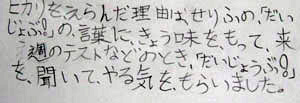 ヒカリをえらんだ理由は、せりふの、「だい
じょぶ?」の言葉に、きょう味をもって、来
週のテストなどのとき、「だいじょうぶ?」
を、聞いて、やる気を、もらいました。